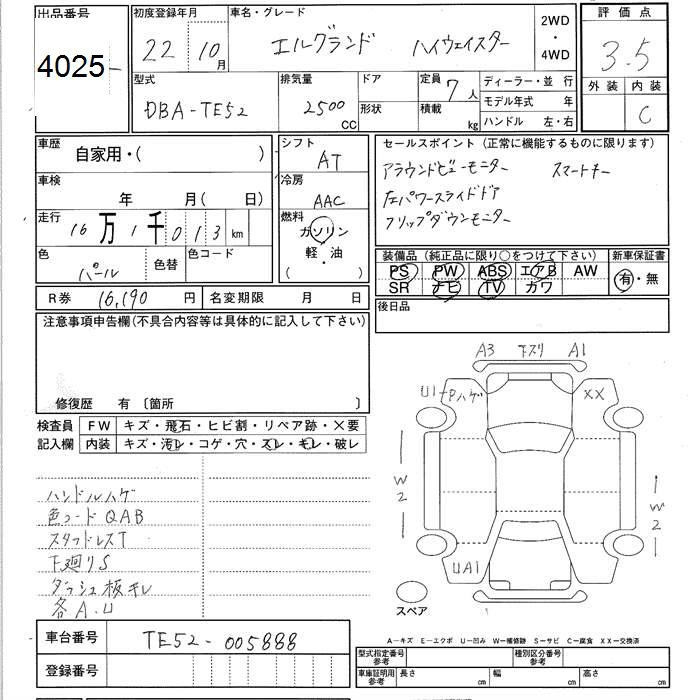 出品番号 初度登録年月 車名・グレード 2WD・4WD 評価点
4025 22 10月 エルグランド ハイウェイスター 3.5
型式 排気量 ドア 定員 7人 ディーラー・並行 外装 内装
DBA-TE52 2500CC 形状 積載 kg モデル年式 年 C
ハンドル 左・右
車歴 自家用・( ) シフト AT セールスポイント(正常に機能するものに限ります)
車検 年 月( 日) 冷房 AAC アラウンドビューモニター スマートキー
走行 16万1千013km 燃料 ガソリン 左パワースライドドア
軽・油 フリップダウンモニター
( )
色 パール 色替 色コード 装備品(純正品に限り○をつけて下さい) 新車保証書
PS PW ABS エアB AW 有・無
SR ナビ TV カワ
R券 16,190円 名変期限 月 日 後日品
注意事項申告欄(不具合内容等は具体的に記入して下さい)
A3 下スリ A1
U1-Pハゲ XX
修復歴 有 〔箇所 〕
検査員 FW キズ・飛石・ヒビ割・リペア跡・×要
記入欄 内装 キズ・汚レ・コゲ・穴・スレ・キレ・破レ
W2 W2
ハンドルハゲ
色コードQAB
スタッドレスT
下廻りS UA1
ダッシュ板キレ
各A.U
スペア
車台番号 TE52-005888
A—キズ E—エクボ U—凹み W—補修跡 S—サビ C—腐食 XX—交換済
登録番号
型式指定番号 参考 種別区分番号 参考
車庫証明用 参考 長さ cm 幅 cm 高さ cm